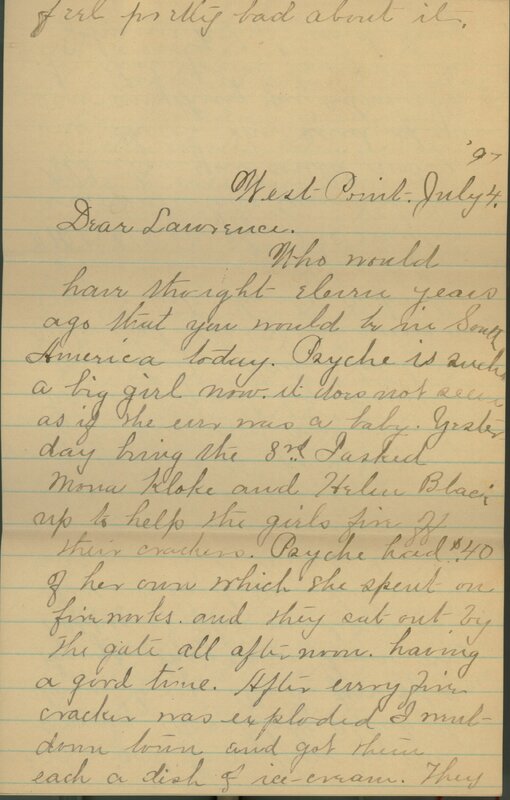 feel pretty bad about it.
'97
West Point. July 4.
Dear Lawrence.
Who would
have thought eleven years
ago that you would be in South
America today. Psyche is such
a big girl now. it does not seem
as if she ever was a baby. Yester
day being the 3rd. I asked
Mona Kloke and Helen Black
up to help the girls fire off
their crackers. Psyche had $.40
of her own which she spent on
fireworks. and they sat out by
the gate all afternoon. having
a good time. After every fire
cracker was exploded I went
down town and got them
each a dish of ice-cream. They